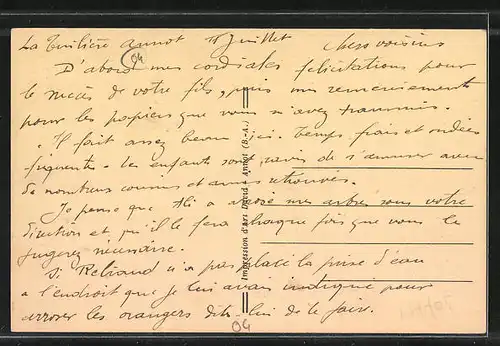 La Tuilière Annot 15 Juillet Chers voisins
D'abord mes cordiales félicitations pour
le succès de votre fils, puis mes remerciements
pour les papiers que vous m'avez transmis.
Il fait assez beau ici. Temps frais et ondées
fréquentes. Les enfants sont ravis de s'amuser avec
de nombreux cousins et amis retrouvés.
Je pense que Ali a arrosé mes arbres sous votre
direction et qu'il le fera chaque fois que vous le
jugerez nécessaire.
Si Rebraud n'a pas placé la prise d'eau
à l'endroit que je lui avais indiqué pour
arroser les orangers dites-lui de le faire.
04
04
Impression d'Art - Annot (B.-A.)